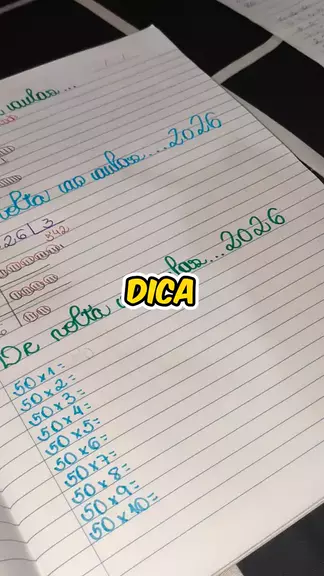 aulas...
volta às aulas...2026
26 3
842
DICA
De volta aulas...2026
50x1=
50x2=
50x3=
50x4=
50x5=
50x6=
50x7=
50x8=
50x9=
50x10=